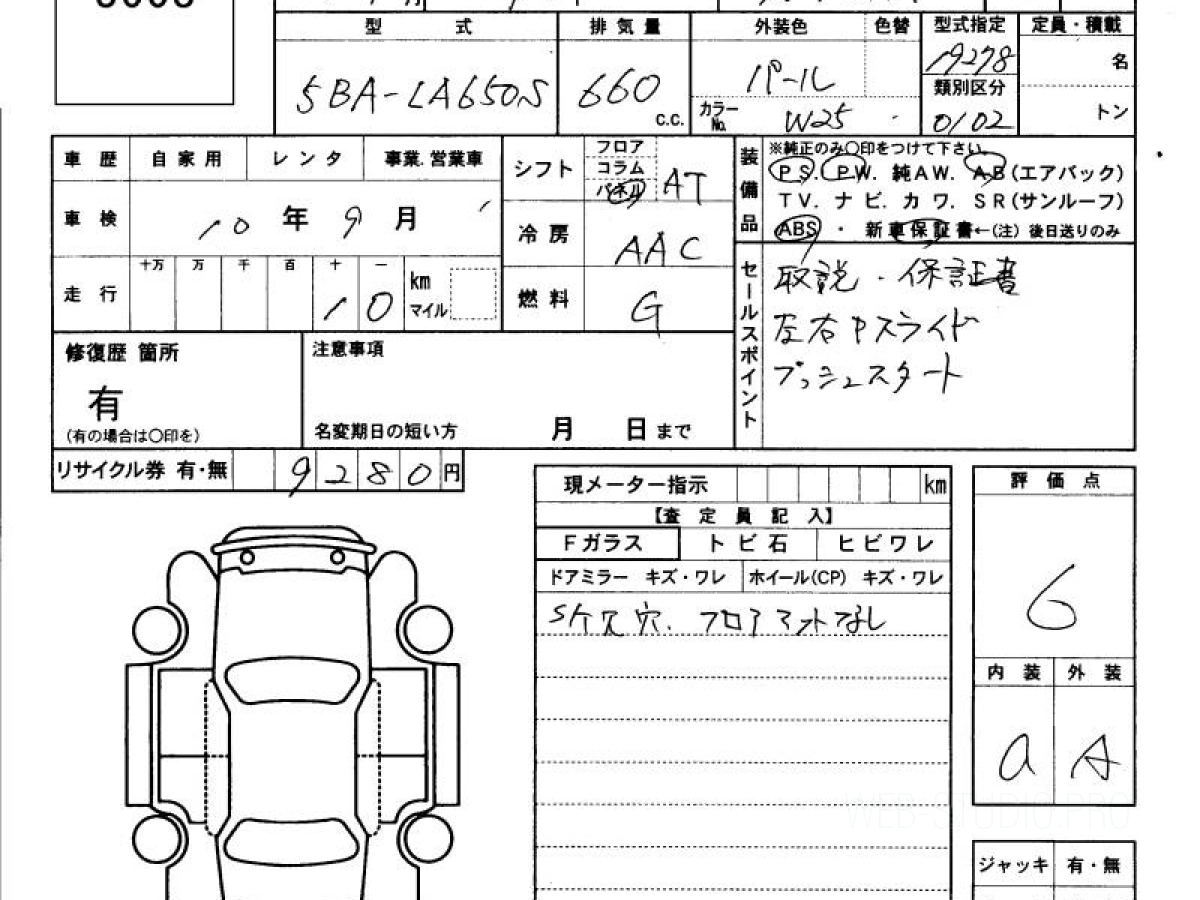 型 式 排気量 外装色 色替 型式指定 定員・積載
5BA-LA650S 660 c.c. パール 19278 名
カラーNo. W25 類別区分 0102 トン
車歴 自家用 レンタ 事業.営業車
車検 10年9月
走行 十万 万 千 百 十 一 km マイル
10
シフト フロア コラム パネル AT
冷房 AAC
燃料 G
装備品 ※純正のみ〇印をつけて下さい。
PS. PW. 純AW. AB(エアバック)
TV. ナビ. カワ. SR(サンルーフ)
ABS ・ 新車保証書←(注) 後日送りのみ
セールスポイント
取説・保証書
左右Pスライド
プッシュスタート
修復歴 箇所
有
(有の場合は〇印を)
注意事項
名変期日の短い方 月 日 まで
リサイクル券 有・無 9280円
現メーター指示 km
【査定員記入】
Fガラス トビ石 ヒビワレ
ドアミラー キズ・ワレ ホイール(CP) キズ・ワレ
フロアマットなし
評価点
6
内装 外装
a A
ジャッキ 有・無
WEB-STUDIO.PRO